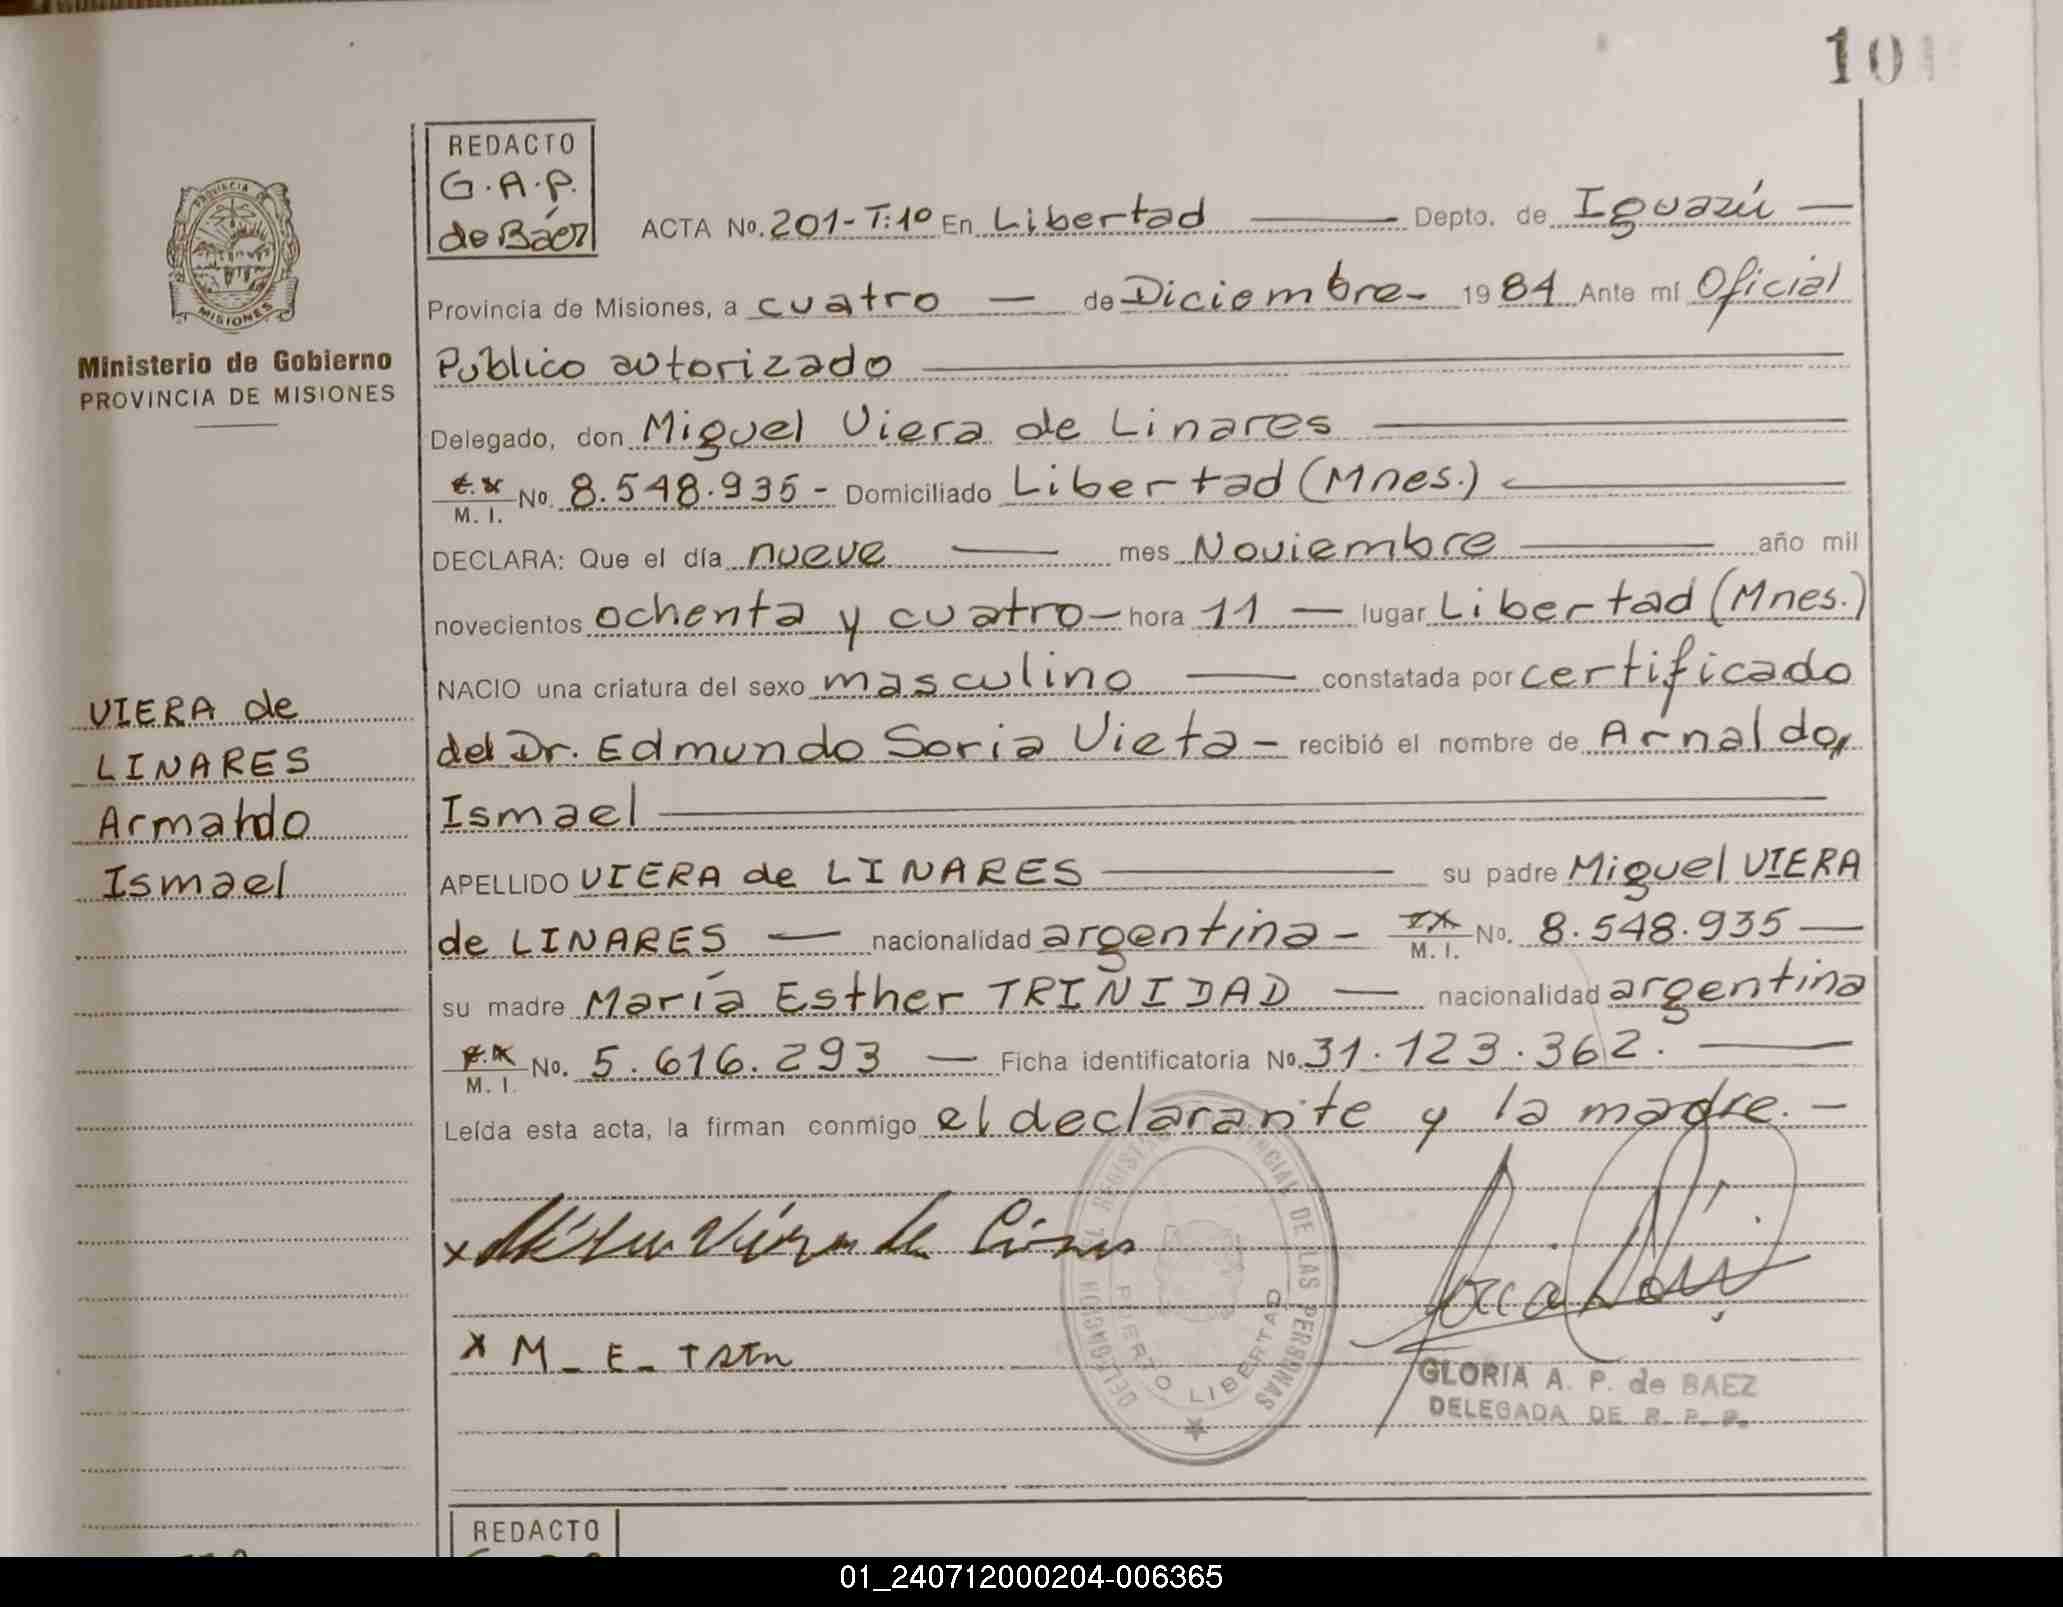 10
REDACTO
G.A.P.
de Báez
ACTA No. 201-T:1º En Libertad Depto. de Iguazú
Provincia de Misiones, a cuatro de Diciembre- 1984 Ante mí Oficial
Publico autorizado
Delegado, don Miguel Viera de Linares
M. I. No. 8.548.935- Domiciliado Libertad (Mnes.)
DECLARA: Que el día nueve mes Noviembre año mil
novecientos ochenta y cuatro- hora 11 lugar Libertad (Mnes.)
NACIO una criatura del sexo masculino constatada por certificado
del Dr. Edmundo Soria Vieta- recibió el nombre de Arnaldo,
Ismael
APELLIDO VIERA de LINARES su padre Miguel VIERA
de LINARES nacionalidad argentina- M. I. No. 8.548.935
su madre María Esther TRINIDAD nacionalidad argentina
M. I. No. 5.616.293 Ficha identificatoria No. 31.123.362.
Leída esta acta, la firman conmigo el declarante y la madre.-
PROVINCIA DE
MISIONES
Ministerio de Gobierno
PROVINCIA DE MISIONES
VIERA de
LINARES
Ismael
x Viera de
x M_ E_
PUERTO LIBERTAD
DE LAS PERSONAS
GLORIA A. P. de BAEZ
DELEGADA DE R. P. P.
REDACTO
01_240712000204-006365